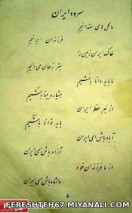 سرود ایران
ما گل های خندانیم
فرزندان ایرانیم
ایران پاک خود را
مانند جان می دانیم
ما باید دانا باشیم
هشیار و بینا باشیم
از بهر حفظ ایران
باید توانا باشیم
آباد باش ای ایران
آزاد باش ای ایران
از ما فرزندان خود
دلشاد باش ای ایران
FERESHTEH67.MIYANALI.COM